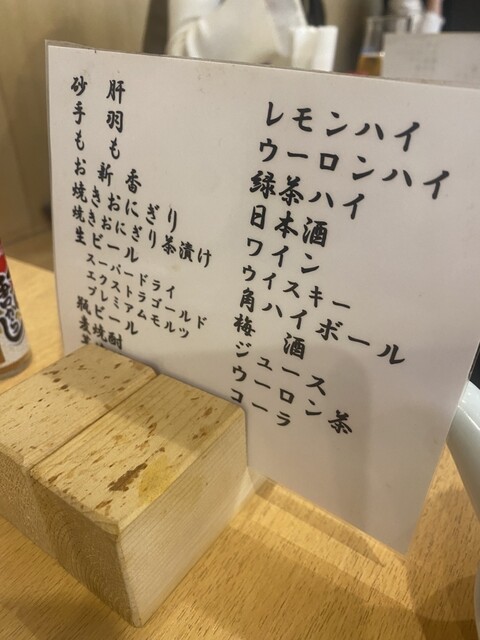 砂肝
手羽
もも
お新香
焼きおにぎり
焼きおにぎり茶漬け
生ビール
スーパードライ
エクストラゴールド
プレミアムモルツ
瓶ビール
麦焼酎
レモンハイ
ウーロンハイ
緑茶ハイ
日本酒
ワイン
ウイスキー
角ハイボール
梅酒
ジュース
ウーロン茶
コーラ